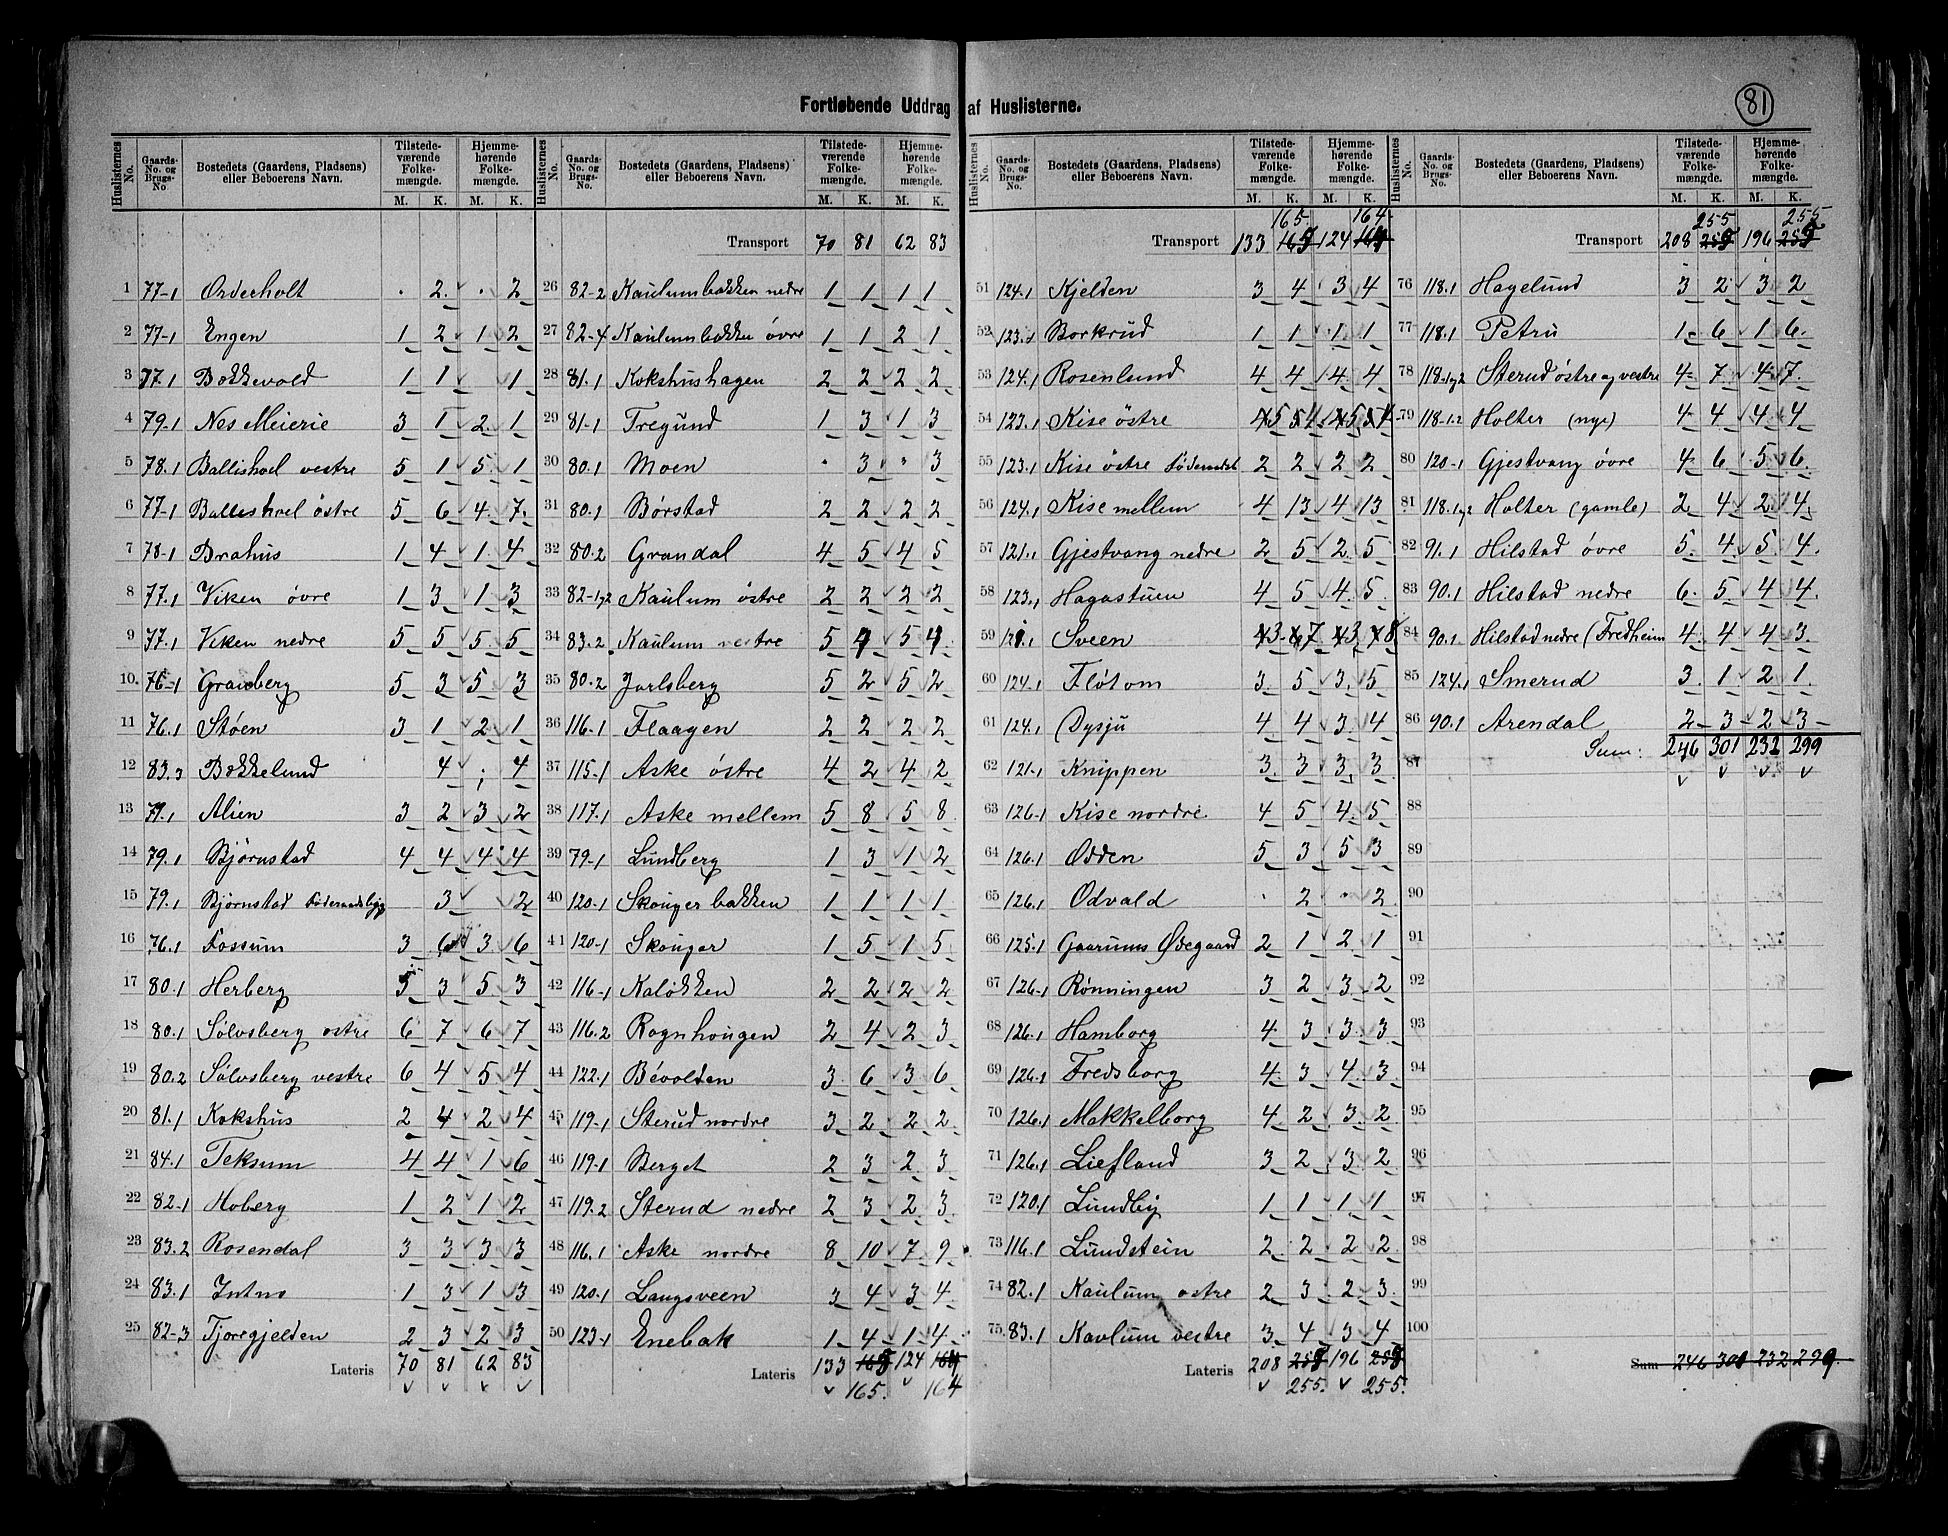 Fortløbende Uddrag af Huslisterne.
81
Huslisternes No. | Gaards-No. og Brugs-No. | Bostedets (Gaardens, Pladsens) eller Beboerens Navn. | Tilstedeværende Folkemængde. M. K. | Hjemmehørende Folkemængde. M. K.
1 77-1 Orderholt . 2 . 2
2 77-1 Engen 1 2 1 2
3 77.1 Bakkevold 1 1 1
4 79-1 Nes Meierie 3 1 2 1
5 78.1 Ballishoel vestre 5 1 5 1
6 77-1 Ballishoel østre 5 6 4 7
7 78-1 Brahus 1 4 1 4
8 77.1 Viken øvre 1 3 1 3
9 77.1 Viken nedre 5 5 5 5
10 76-1 Granberg 5 3 5 3
11 76.1 Støen 3 1 2 1
12 83.3 Bakkelund 4 . 4
13 79.1 Alien 3 2 3 2
14 79.1 Bjørnstad 4 4 4 4
15 79.1 Bjørnstad 3 2
16 76.1 Fossum 3 6 3 6
17 80.1 Herberg 5 3 5 3
18 80.1 Sølvsberg østre 6 7 6 7
19 80.2 Sølvsberg vestre 6 4 5 4
20 81.1 Kokshus 2 4 2 4
21 84.1 Teksum 4 4 1 6
22 82-1 Hoberg 1 2 1 2
23 83.2 Rosendal 3 3 3 3
24 83.1 1 3 1 3
25 82-3 Tjorgjelden 2 3 2 3
Lateris 70 81 62 83
Transport 70 81 62 83
26 82-2 Kaulumbakken nedre 1 1 1 1
27 82-4 Kaulumbakken øvre 1 1 2 1
28 81.1 Kokshushagen 2 2 2 2
29 81-1 Tregund 1 3 1 3
30 80.1 Moen . 3 . 3
31 80.1 Børstad 2 2 2 2
32 80.2 Grandal 4 5 4 5
33 82-1,2 Kaulum østre 2 2 2 2
34 83.2 Kaulum vestre 5 4 5 4
35 80.2 Jarlsberg 5 2 5 2
36 116-1 Flaagen 2 2 2 2
37 115-1 Aske østre 4 2 4 2
38 117.1 Aske mellem 5 8 5 8
39 79-1 Lundberg 1 3 1 2
40 120-1 Skougerbakken 1 1 1 1
41 120-1 Skouger 1 5 1 5
42 116-1 Kaløkken 2 2 2 2
43 116.2 Rognhougen 2 4 2 3
44 122.1 Bévolden 3 6 3 6
45 119-1 Sterud nordre 3 2 2 2
46 119-1 Berget 2 3 2 3
47 119.2 Sterud nedre 2 3 2 3
48 116.1 Aske nordre 8 10 7 9
49 120.1 Langsveen 3 4 3 4
50 123-1 Enebak 1 4 1 4
Lateris 133 124
165. 164
165 164
Transport 133 124
51 124.1 Kjelden 3 4 3 4
52 123.1 Borkrud 1 1 1 1
53 124.1 Rosenlund 4 4 4 4
54 123.1 Kise østre 5 4 5 4
55 123.1 Kise østre 2 2 2 2
56 124.1 Kise mellem 4 13 4 13
57 121.1 Gjestvang nedre 2 5 2 5
58 123.1 Hagastuen 4 5 4 5
59 Sveen 3 7 3 8
60 124-1 Fløtom 3 5 3 5
61 124.1 Dysju 4 4 3 4
62 121-1 Knippen 3 3 3 3
63 126-1 Kise nordre 4 5 4 5
64 126.1 Odden 5 3 5 3
65 126.1 Odvald . 2 . 2
66 125.1 Gaarums Ødegaard 2 1 2 1
67 126-1 Rønningen 3 2 3 2
68 126-1 Hamborg 4 3 3 3
69 126.1 Fredsborg 4 3 4 3
70 126.1 Makkelborg 4 2 3 2
71 126.1 Liefland 3 2 3 2
72 120.1 Lundby 1 1 1 1
73 116.1 Lundstein 2 2 2 2
74 82.1 Kaulum østre 2 3 2 3
75 83.1 Kavlum vestre 3 4 3 4
Lateris 208 196
255. 255.
255 255
Transport 208 196
76 118.1 Hagelund 3 2 3 2
77 118.1 Petru 1 6 1 6
78 118-1,2 Sterud østre og vestre 4 7 4 7
79 118-1-2 Holter (nye) 4 4 4 4
80 120-1 Gjestvang øvre 4 6 5 6
81 118.1,2 Holter (gamle) 2 4 2 4
82 91.1 Hilstad øvre 5 4 5 4
83 90.1 Hilstad nedre 6 5 4 4
84 90.1 Hilstad nedre (Fredheim 4 4 4 3
85 124.1 Smerud 3 1 2 1
86 90.1 Arendal 2 3 2 3
Sum: 246 301 232 299
87
88
89
90
91
92
93
94
95
96
97
98
99
100
Sum 246 301 232 299.